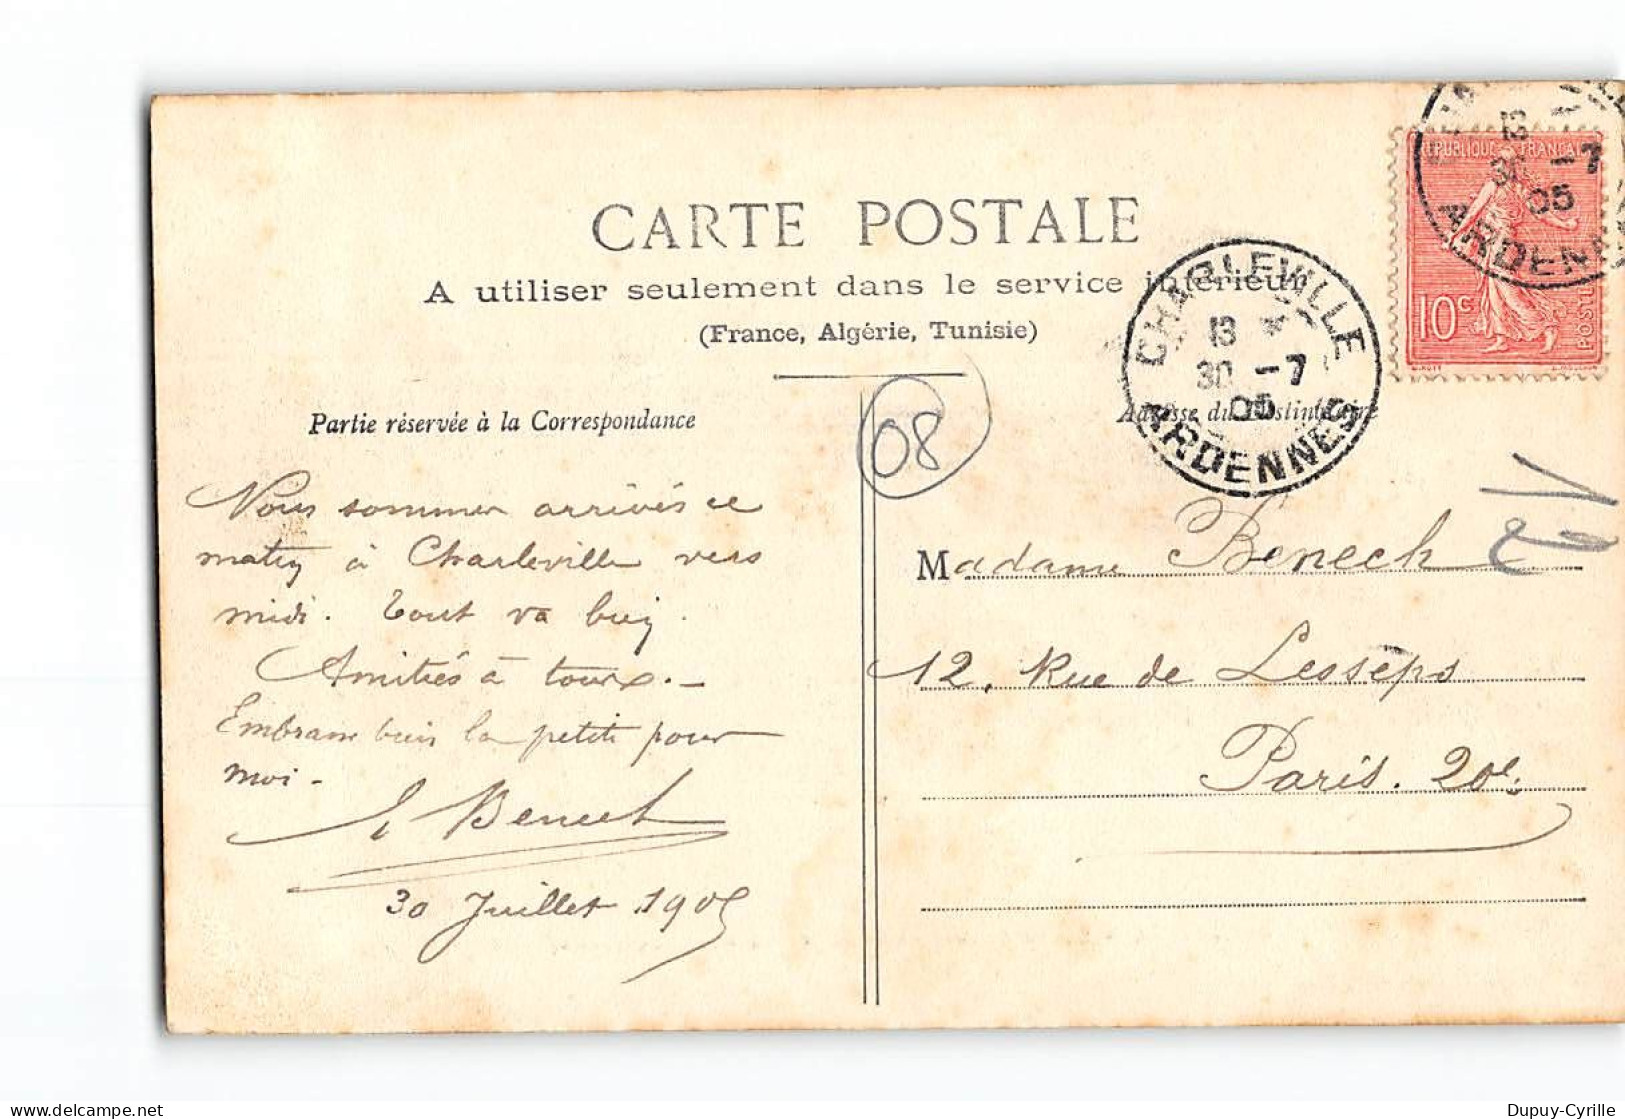 CARTE POSTALE
A utiliser seulement dans le service intérieur
(France, Algérie, Tunisie)
Partie réservée à la Correspondance
Nous sommes arrivés ce
matin à Charleville vers
midi. Tout va bien.
Amitiés à tous. –
Embrasse bien la petite pour
moi –
Benech
30 Juillet 1905
08
Adresse du Destinataire
Madame Benech
12, Rue de Lesseps
Paris. 20e.
CHARLEVILLE
13
30 -7
05
ARDENNES
REPUBLIQUE FRANÇAISE
10c
POSTES
CHARLEVILLE
13
30 -7
05
ARDENNES
Dupuy-Cyrille